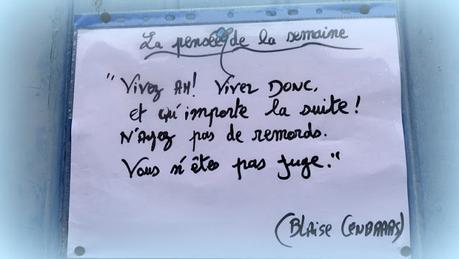 La pensée de la semaine
"Vivez AH! Vivez DONC,
et qu'importe la suite!
N'Ayez pas de remords.
Vous n'êtes pas Juge."
(BLAISE CENDRARS)